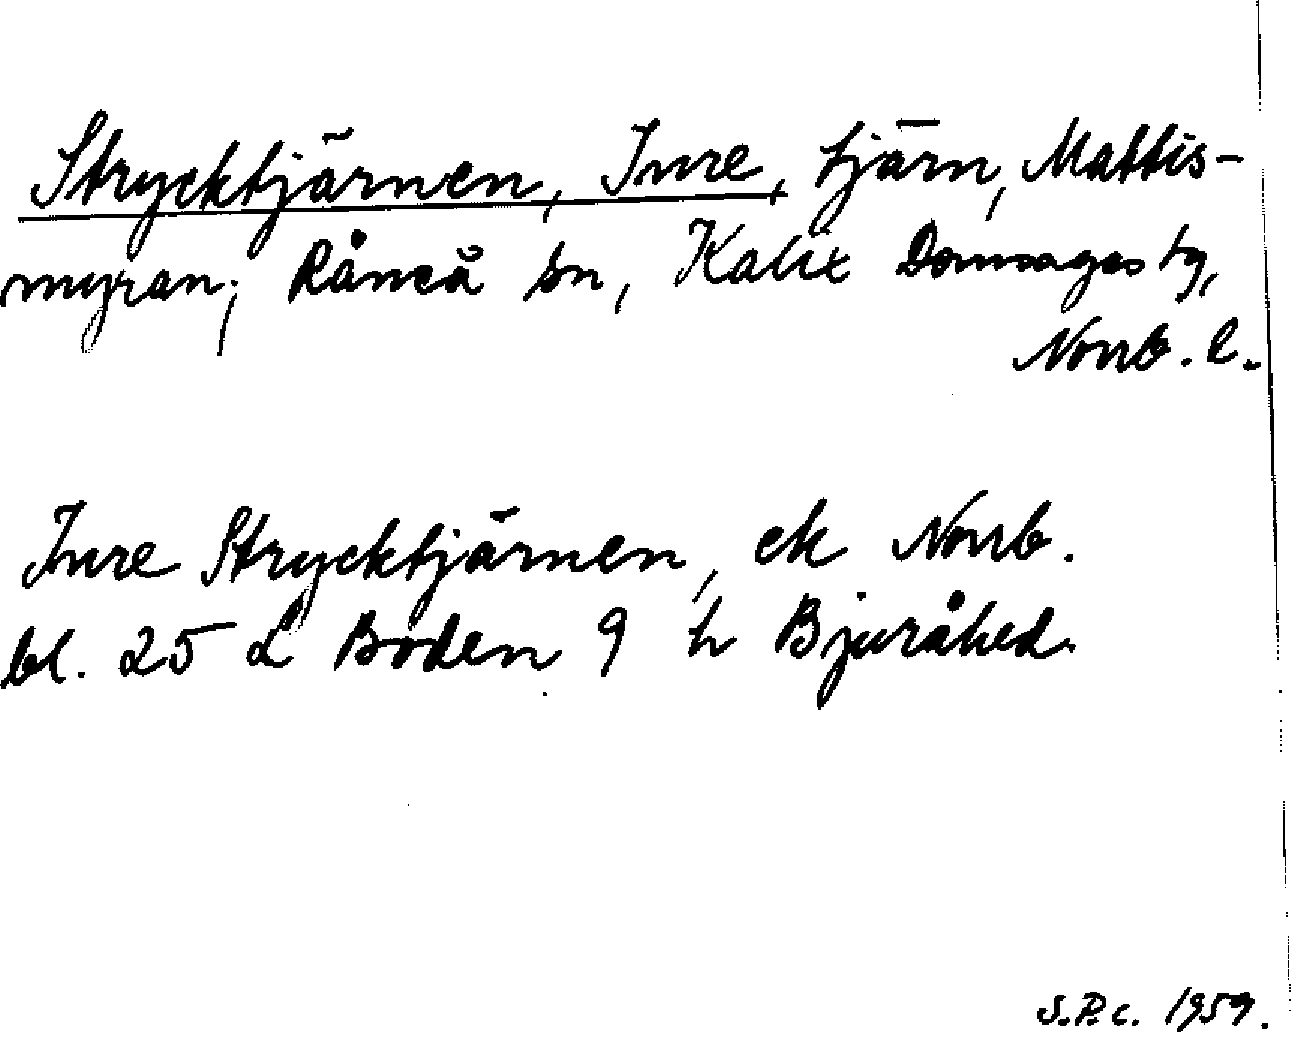 Strycktjärnen, Inre, tjärn, Mattis-
myran, Råneå sn, Kalix Domsagas tg,
Norrb. l.
Inre Strycktjärnen, ek Norrb.
bl. 25 L Boden 9 h Bjuråhed.
S.P.c. 1959.